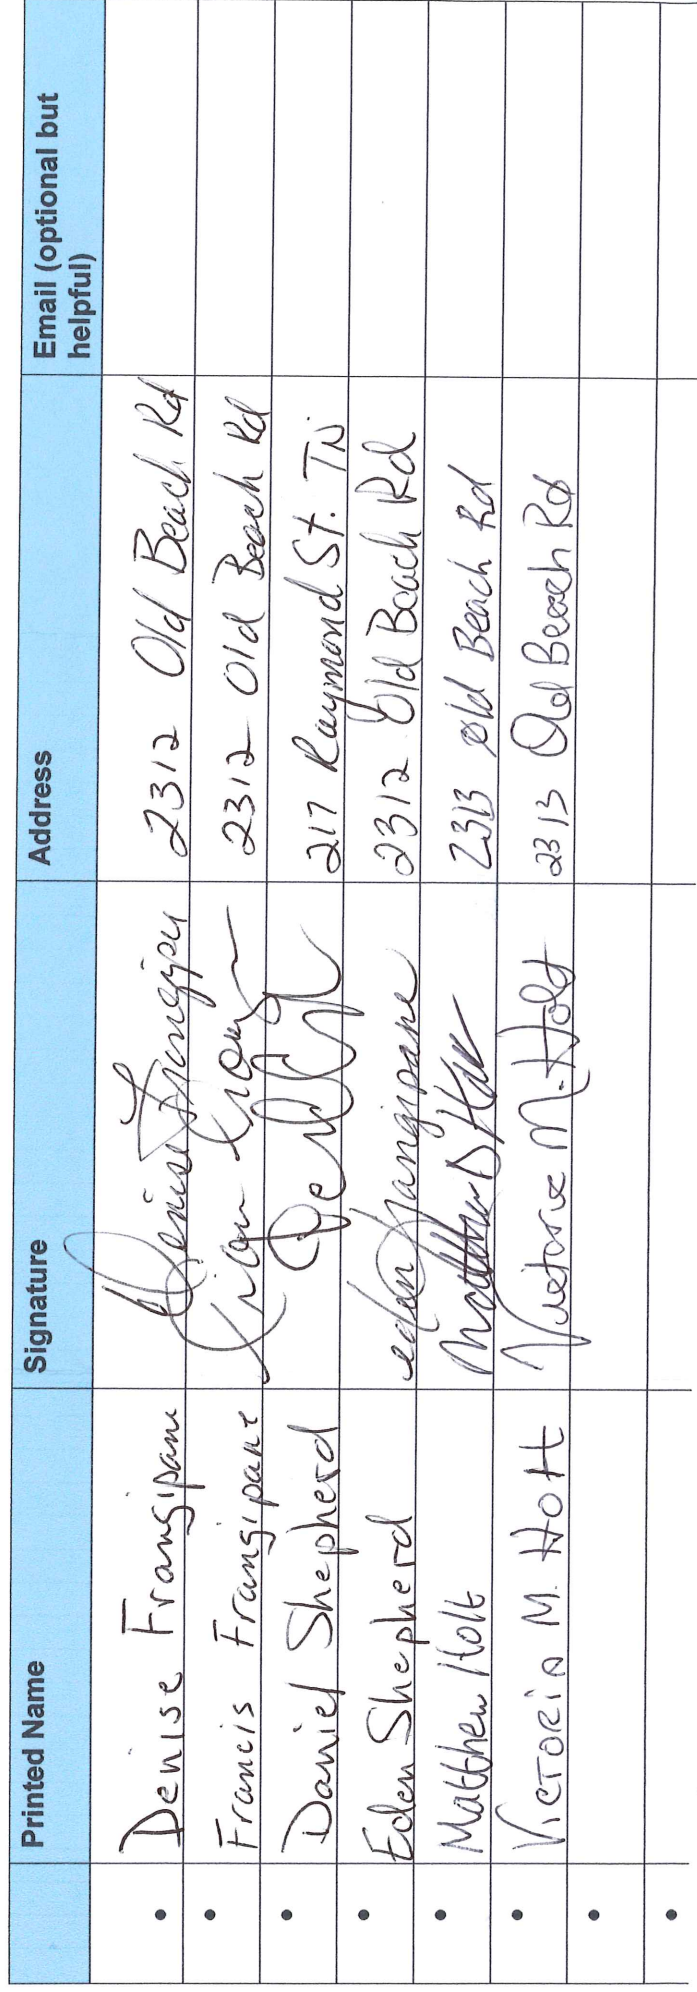 Printed Name Signature Address Email (optional but helpful)
• Denise Frangipani Denise Frangipani 2312 Old Beach Rd
• Francis Frangipane 2312 Old Beach Rd
• Daniel Shepherd 217 Raymond St. TN
• Eden Shepherd eden frangipane 2312 Old Beach Rd
• Matthew Holt Matthew D Holt 2313 old Beach Rd
• VICTORIA M. HOLT Victoria M. Holt 2313 Old Beach Rd
•
•